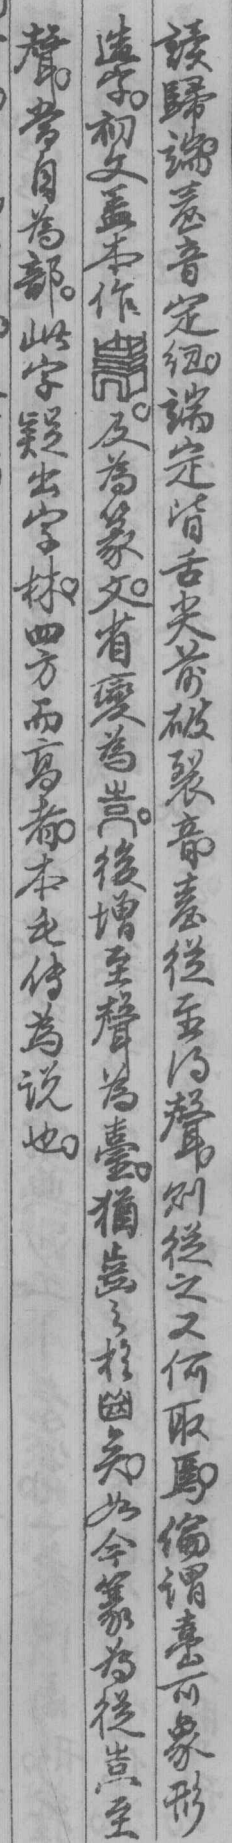 讀歸端。臺音定紐。端定皆舌尖前破裂音。臺從至得聲。則從之又何取焉。倫謂臺可象形
造字。初文蓋本作。及為篆文。省變為。後增至聲為臺。猶齒之於矣。如今篆為從至
聲。當自為部。此字疑出字林。四方而高者。本毛傳為説也。